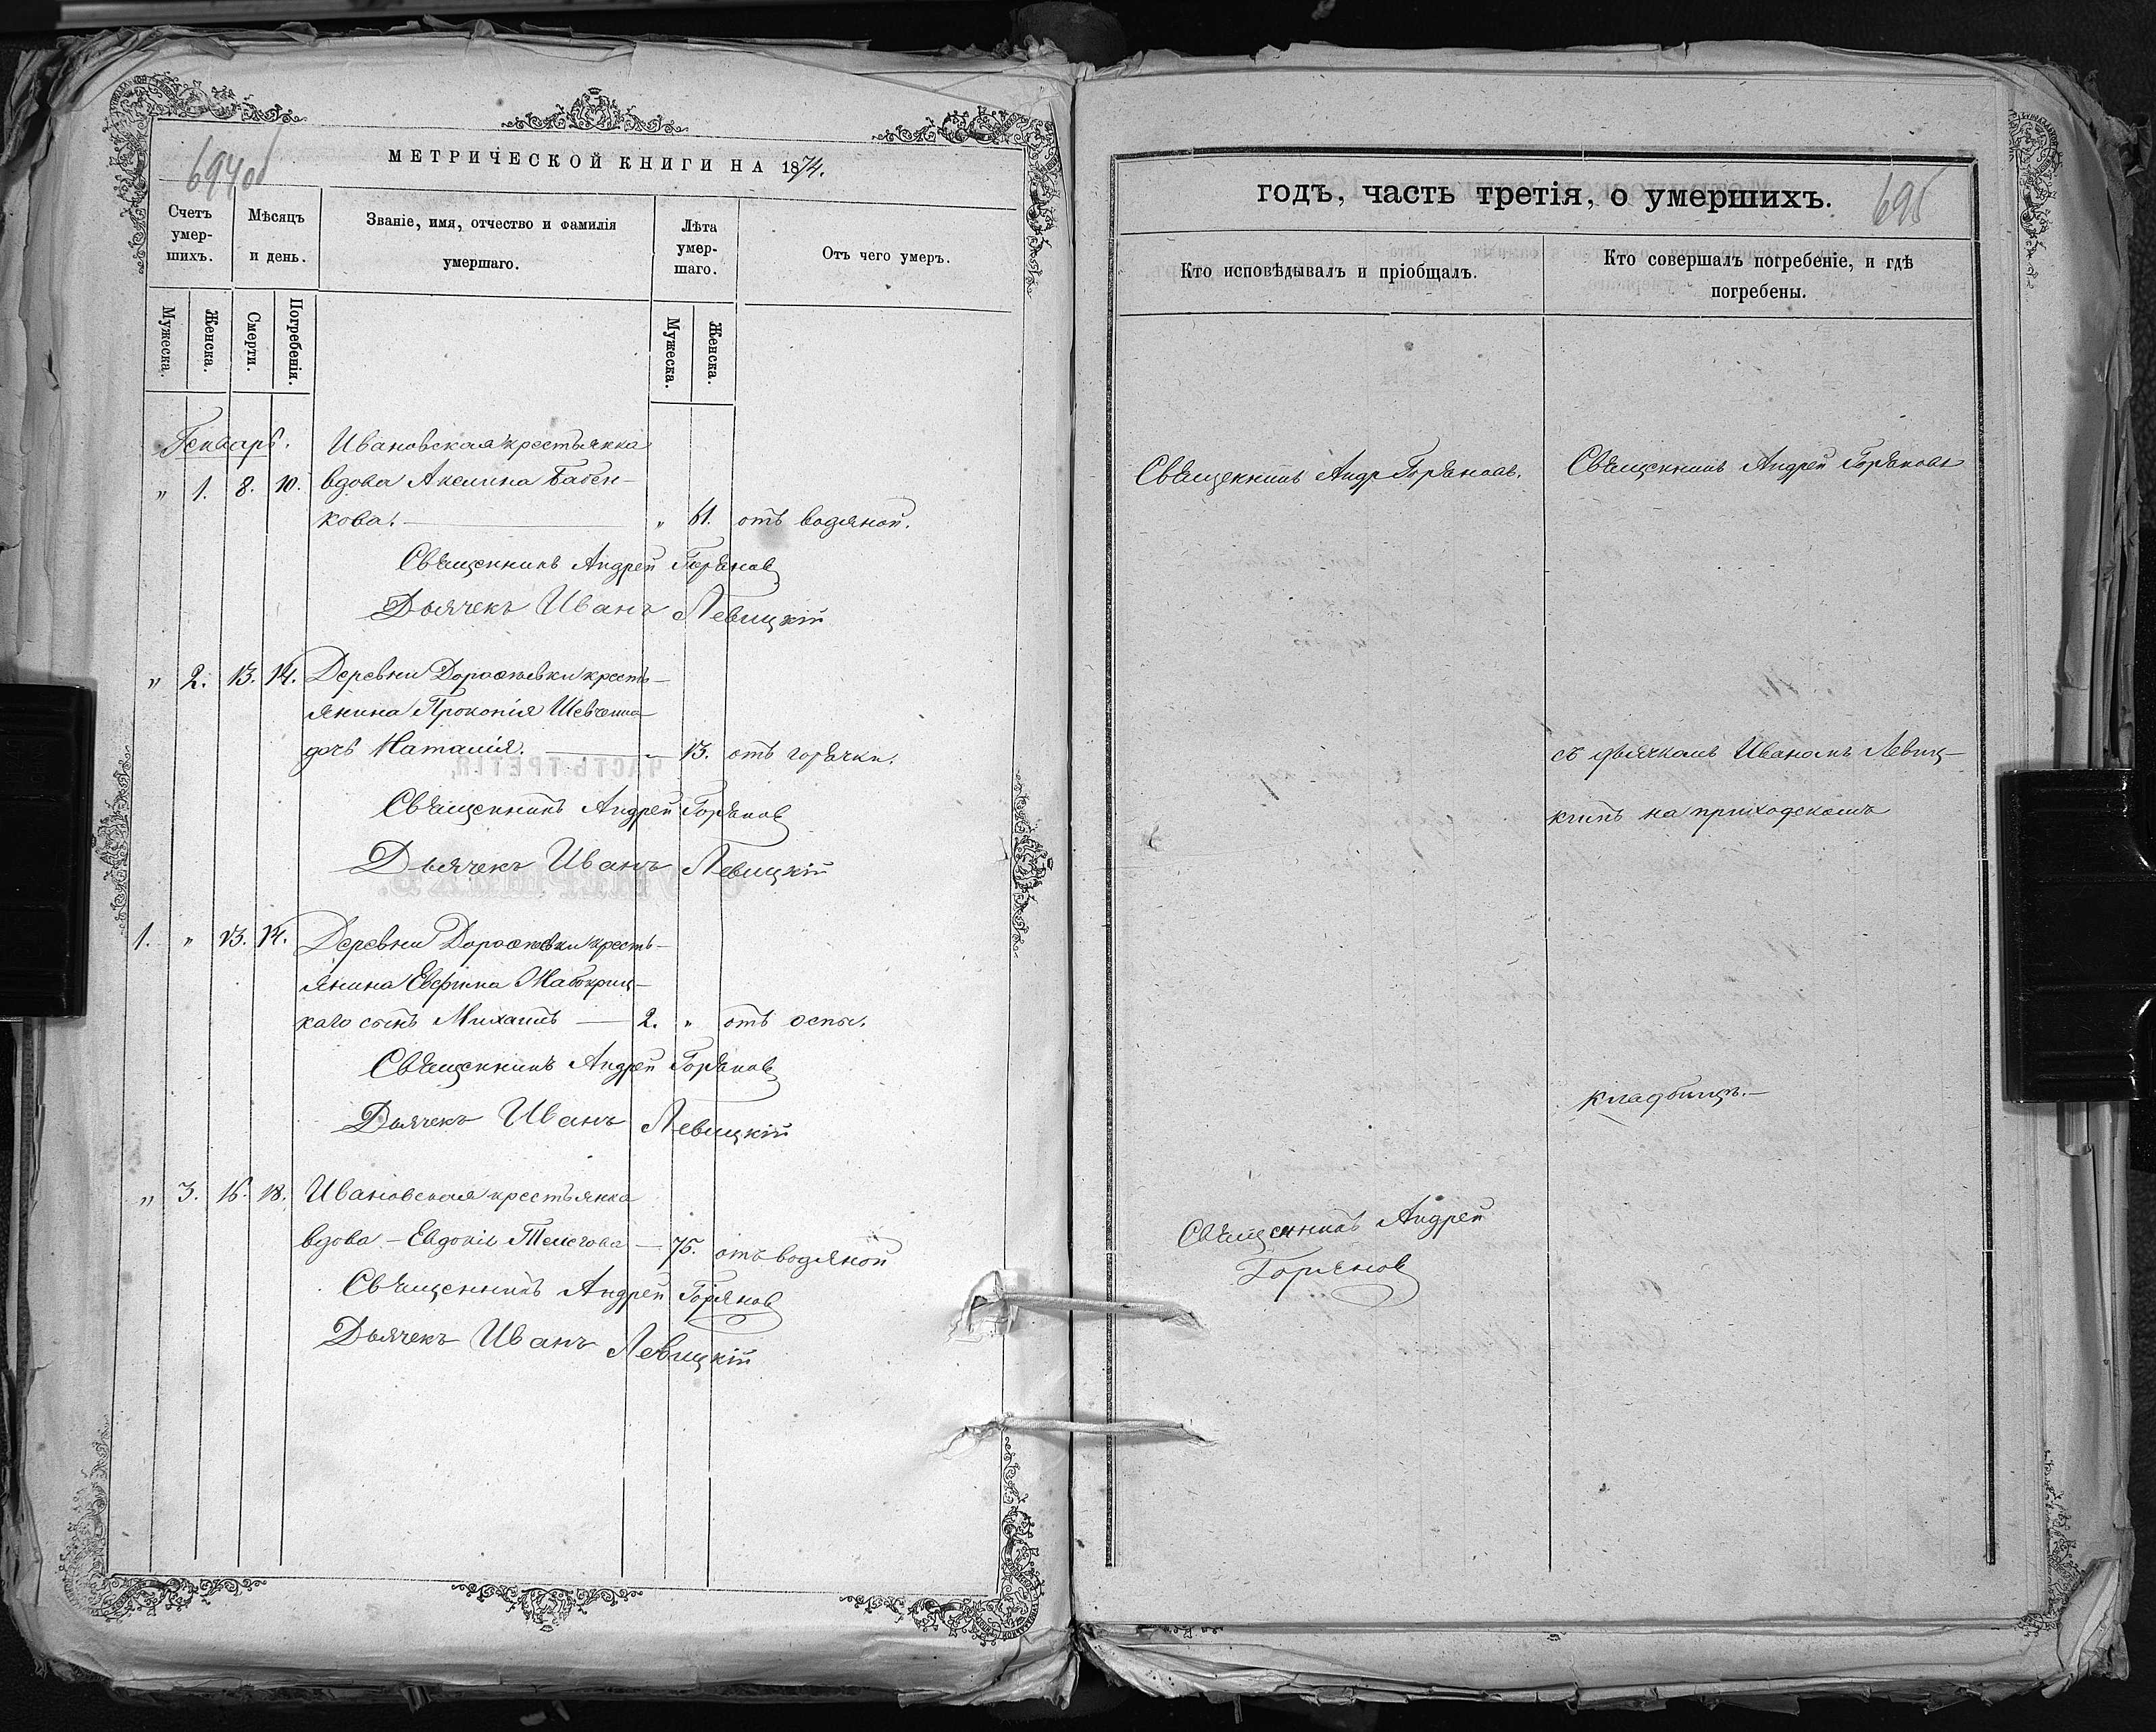 694об
МЕТРИЧЕСКОЙ КНИГИ НА 1874.
Счетъ умер-шихъ.
Мѣсяцъ и день.
Званіе, имя, отчество и фамилія умершаго.
Лѣта умер-шаго.
Отъ чего умеръ.
Мужеска.
Женска.
Смерти.
Погребенія.
Мужеска.
Женска.
Генварь.
Ивановская крестьянка
„ 1. 8. 10. вдова Акелина Бабен-
кова. — „ 61. отъ водяной.
Священникъ Андрей Горяновъ
Дьячекъ Иванъ Левицкій
„ 2. 13. 14. Деревни крестъ-
янина Прокопія Шевченка
дочь Наталія. — „ 13. отъ горячки.
Священникъ Андрей Горяновъ
Дьячекъ Иванъ Левицкій
1. „ 13. 14. Деревни крестъ-
янина
каго сынъ Михаилъ — 2. „ отъ оспы.
Священникъ Андрей Горяновъ
Дьячекъ Иванъ Левицкій
„ 3. 16. 18. Ивановская крестьянка
вдова – Евдокія — 75. отъ водяной
Священникъ Андрей Горяновъ
Дьячекъ Иванъ Левицкій
ГОДЪ, ЧАСТЬ ТРЕТІЯ, О УМЕРШИХЪ.
695
Кто исповѣдывалъ и пріобщалъ.
Кто совершалъ погребеніе, и гдѣ
погребены.
Священникъ Андр Горяновъ.
Священникъ Андрей Горяновъ
съ дьячкомъ Иваномъ Левиц-
кимъ на приходскомъ
кладбищѣ.—
Священникъ Андрей
Горяновъ